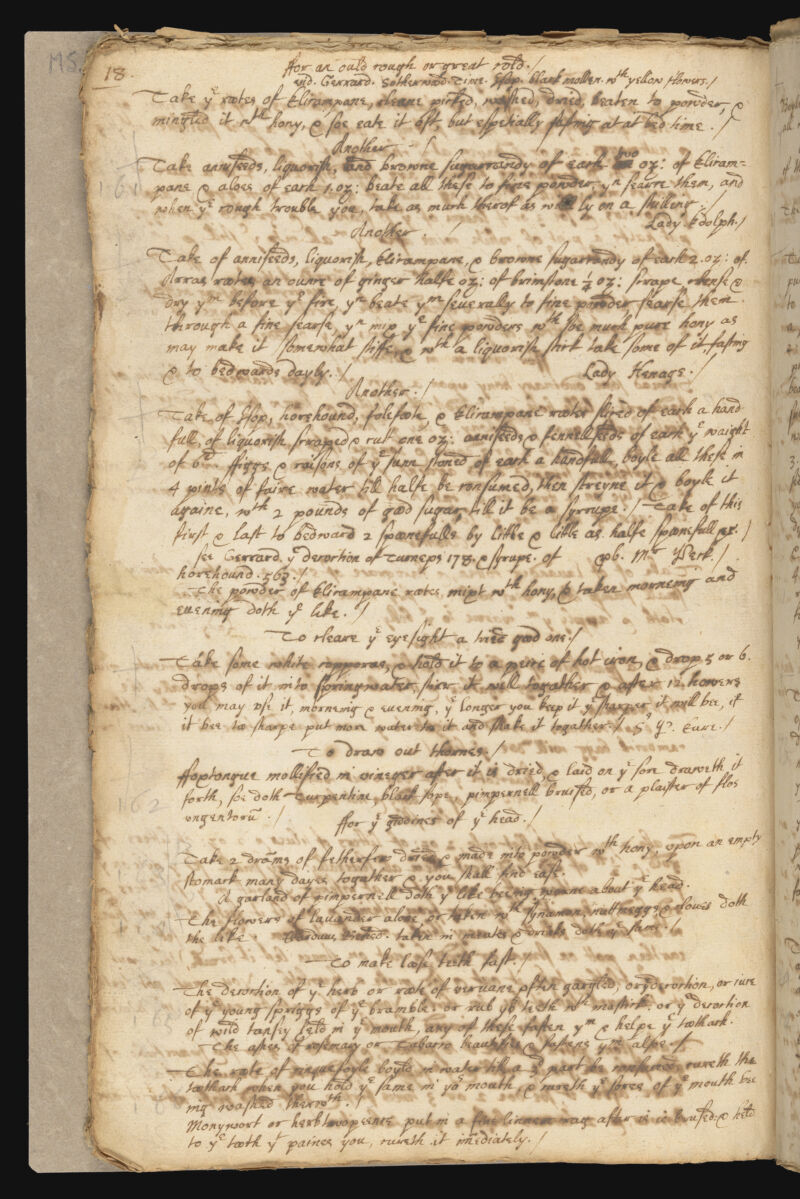 MS.
18.
ffor an ould cough or great cold./
vid. Gerrard. Sotherwood. Time. Isop. black mollen. wth yellow flowers./
Take ye rootes of Elicampane, cleane picked, washed, dried, beaten to powder, &
mingled it wth hony, & soe eate it oft, but especially fasting at at bed time. /
Another ./
Take annisseeds, liquorish, and browne sugarcandy of each two oz: of Elicam=
pane & aloes of each 1. oz: beate all these to fine powder, yn searce them, and
when ye cough trouble you, take as much therof as will ly on a shilling. /
Lady Edolph./
Another . /
Take of annisseeds, liquorish, Elicampane, & browne sugarcandy of each 2. oz: of.
Arras rootes an ounce of ginger halfe oz: of brimstone ½ oz: scrape, clense &
dry ym before ye fire, yn beate ym severally to fine powder searse them
through a fine searse, yn mix ye fine powders wth soe much pure hony as
may make it somewhat stiffe, & wth a liquorish stick take some of it, fasting
& to bedwards dayly. / Lady Henage. /
Another. /
Take of Isop, horehound, folefoote, & Elicampane rootes sliced of each a hand
full, of liquorish scraped & cut one oz: annisseeds & fennellseeds of each ye waight
of 6d. ffiggs & raisons of ye sunn stoned of each a handfull, boyle all these in
4 pints of faire water till halfe be consumed, then streyne it & boyle it
againe, wth 2 pounds of good sugar, till it be a syrrupe. / Take of this
first & last to bedward 2 spoonefulls by little & little as halfe spoonefull
see Gerrard. ye decoction of Turneps 178. & syrupe. of Mr Perk. /
horehound. 563./
The powder of Elicampane rootes, mixt wth hony, & taken morneing and
evening doth ye like. /
To cleare ye eyesight a tried good one./
Take some white copporas, & hold it to a peice of hot iron, & drop 5 or 6.
drops of it into springwater, stirr it well together & after 12 howers
you may use it, morneing & evening, ye longer you keep it ye sharper it will bee, if
it bee too sharpe put more water to it and shake it together./
To draw out thornes./
ffoxtongue mollified in vineger after it is dried & laid on ye sore draweth it
forth, soe doth Turpentine, black sope, pimpernell bruised, or a plaister of flos
ungentoru. /
ffor ye gidines of ye head. /
Take 2 drams of fetherfew dried & made into powder wth hony, upon an empty
stomack many dayes together & you shall find ease.
A garland of pimpernell doth ye like beeing worne about ye head.
The flowers of lavander alone or taken wth synamon, nuttmeggs & cloves doth
the like. Carduus taken in meates & drinks doth ye same. /
To make loose teeth fast. /
The decoction of ye herb or roote of vervane often gargled, or ye decoction, or iuce
of ye young spriggs of ye bramble: or rub ye teeth wth mastick. or ye decoction
of wild tansey held in ye mouth, any of these fasten ym & helpe ye toothack.
The ashes of rosemary or Tabacco beautifies & fastens ym alsoe
The roote of cinquefoyle boyld in water till a 3d part be consumed, cureth the
toothack when you hold ye same in yor mouth, & cureth ye sores of ye mouth bee
ing washed therewth. /
Monywort or herb twopence put in a fine linnen rag after it is brused & held
to ye tooth yt paines you, cureth it imediately. /